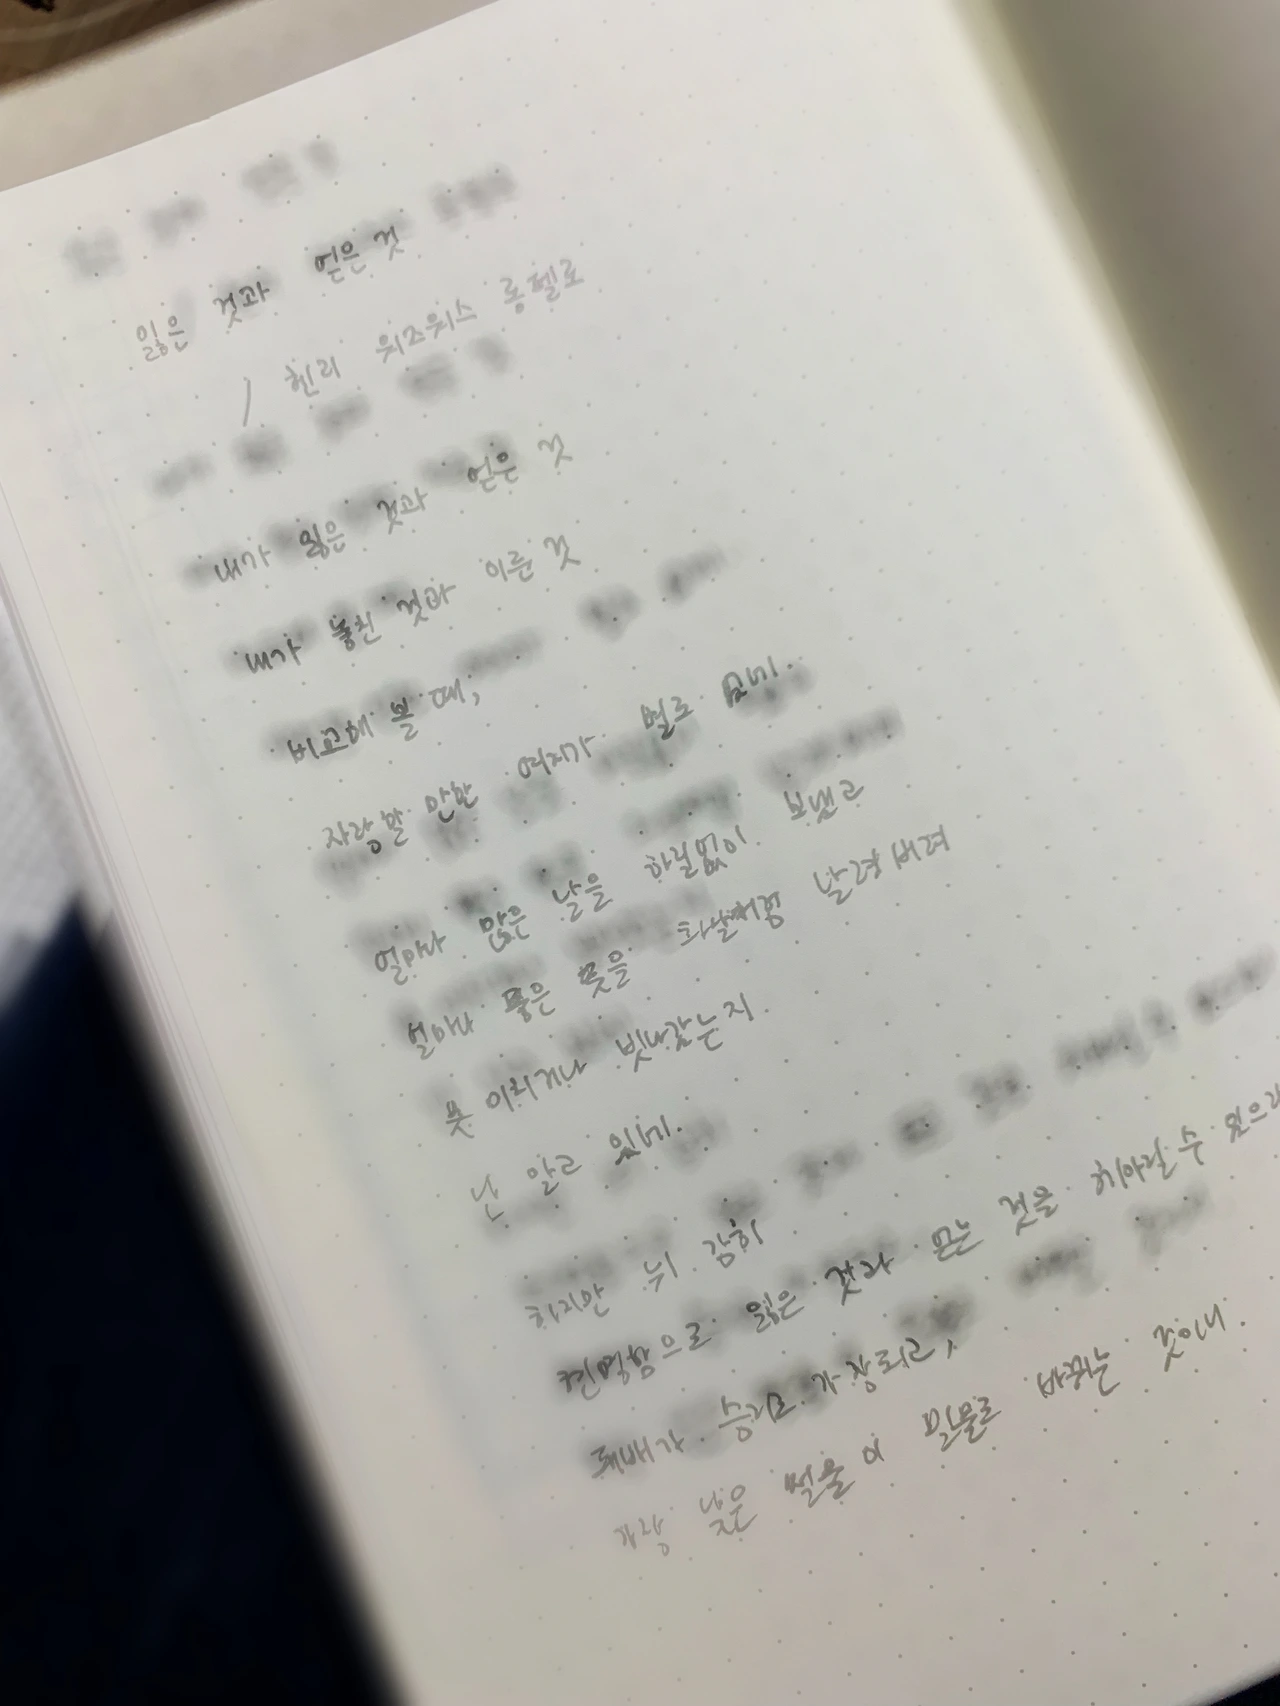 잃은 것과 얻은 것
/ 헨리 워즈워스 롱펠로
내가 잃은 것과 얻은 것
내가 놓친 것과 이룬 것
비교해 볼 때,
자랑할 만한 여지가 별로 없네.
얼마나 많은 날을 하릴없이 보냈고
얼마나 좋은 뜻을 화살처럼 날려버려
못 이루거나 빗나갔는지
난 알고 있네.
하지만 뉘 감히
현명함으로 잃은 것과 얻는 것을 헤아릴 수 있으랴
패배가 승리로 가장되고,
가장 낮은 썰물이 밀물로 바뀌는 것이니.